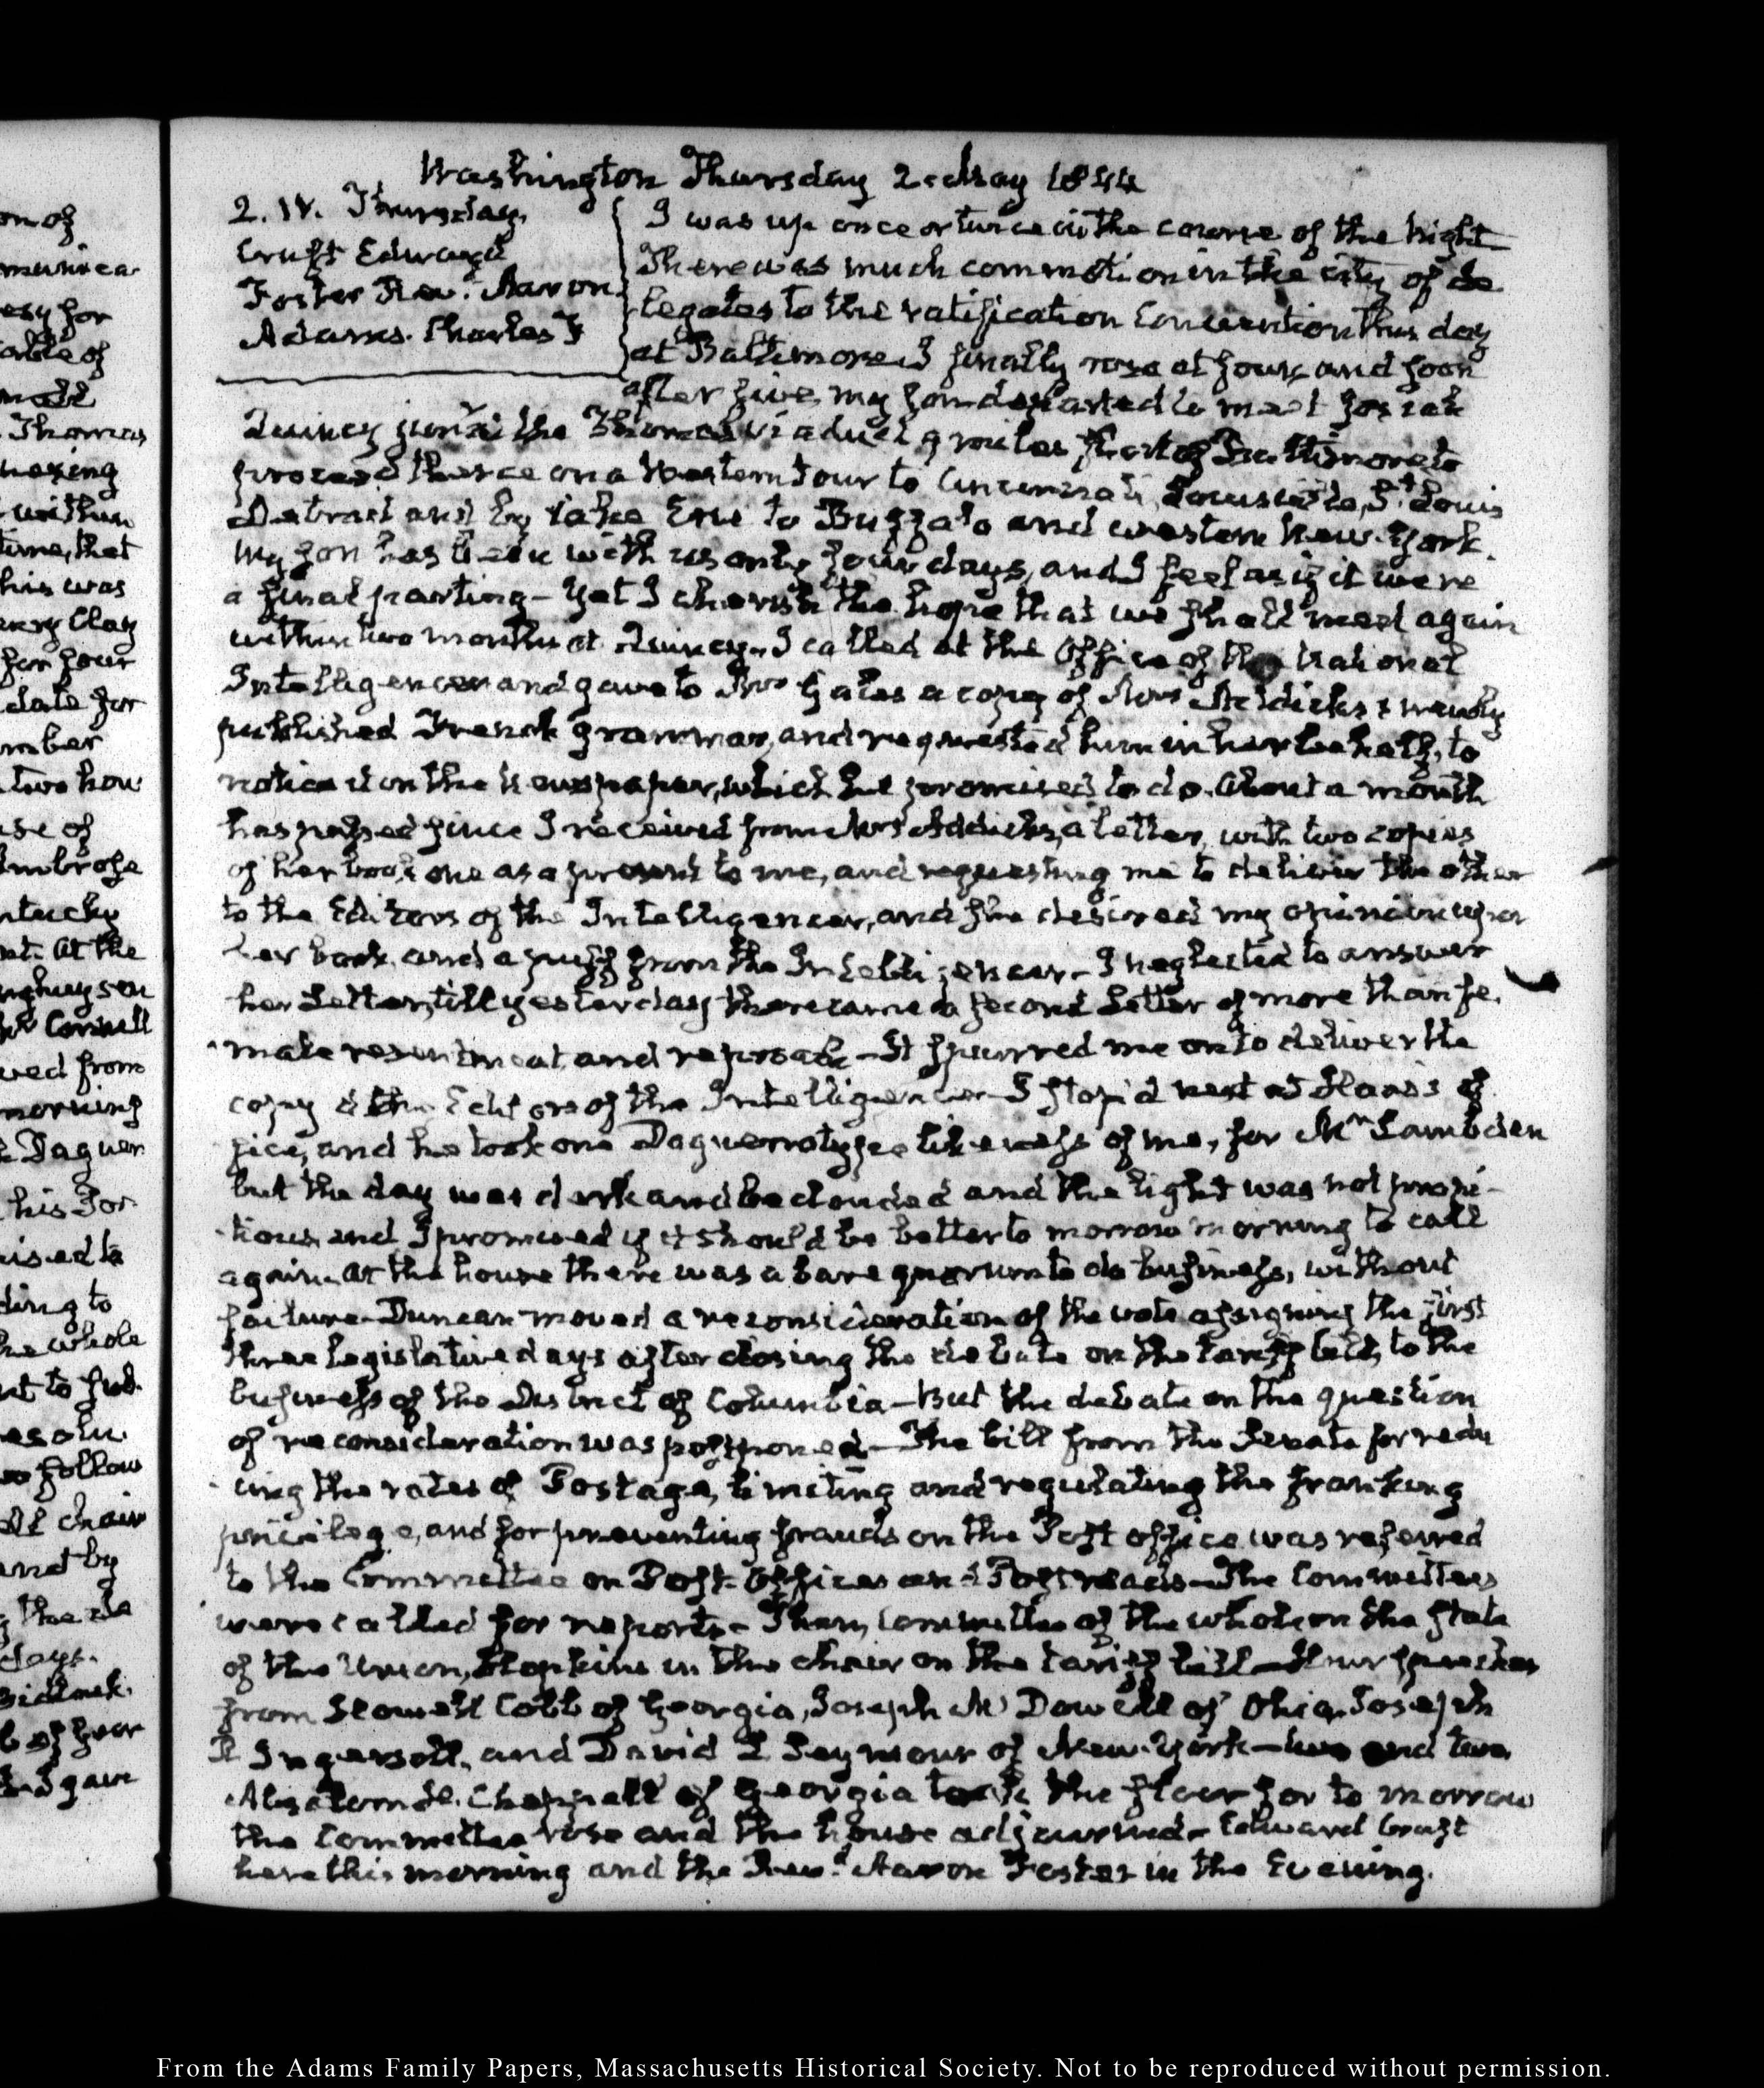 on of
esy for
able of
made
Thomas
making
within
time, that
his was
enry Clay
for four
date for
mber
two hou
use of
Ambrose
ntucky
nt. At the
linghuysen
Mr. Cornell
ved from
morning
Daguer
his Por
ised to
ding to
he whole
nt to sub.
esolu
to follow
chair
and by
the de
days.
Bidlack.
of four
I gave
Washington Thursday 2. May 1844
2. IV. Thursday.
Cruft Edward
Foster Revd. Aaron
Adams. Charles F
I was up once or twice in the course of the night
There was much commotion in the city of de
legates to the ratification Convention this day
at Baltimore. I finally rose at four, and soon
after five, my son departed to meet Josiah
Quincy junr. at the Thomas viaduct 9 miles short of Baltimore to
proceed thence on a Western tour to Cincinnati, Louisville, St. Louis
Detroit and by lake Erie to Buffalo and western New-York.
My son has been with us only four days, and I feel as if it were
a final parting— Yet I cherish the hope that we shall meet again
within two months at Quincy— I called at the Office of the National
Intelligencer and gave to Mr. Gales a copy of Mrs. Addicks's newly
published French grammar, and requested him in her behalf, to
notice it in the newspaper, which he promised to do. About a month
has passed since I received from Mrs Addicks, a letter, with two copies
of her book one as a present to me, and requesting me to deliver the other
to the Editors of the Intelligencer, and she desired my opinion upon
her book, and a puff from the Intelligencer— I neglected to answer
her Letter, till yesterday there came a second Letter of more than fe.
male resentment and reproach— It spurred me on to deliver the
copy to the Editors of the Intelligencer— I stop'd next at Haas's of
fice, and he took one Daguerrotype likeness of me, for Mr. Lambden
but the day was dark and beclouded and the light was not propi-
tious and I promised if it should be better to morrow morning to call
again— At the house there was a bare quorum to do business, without
failure— Duncan moved a reconsideration of the vote assigning the first
three legislative days after closing the debate on the tariff bill, to the
business of the District of Columbia— But the debate on the question
of reconsideration was postponed— The bill from the Senate for redu
cing the rates of Postage, limiting and regulating the franking
privilege, and for preventing frauds on the Post office was referred
to the Committee on Post-Offices and Post roads— The Committees
were called for reports— Then, Committee of the whole on the state
of the Union, Hopkins in the chair on the tariff bill— Hour speeches
from Howell Cobb of Georgia, Joseph McDowell of Ohio, Joseph
R Ingersoll, and David L Seymour of New-York— two and two.
Absalom H. Chappell of Georgia took the floor for to morrow
the Committee rose and the house adjourned— Edward Cruft
here this morning and the Revd. Aaron Foster in the Evening.
From the Adams Family Papers, Massachusetts Historical Society. Not to be reproduced without permission.